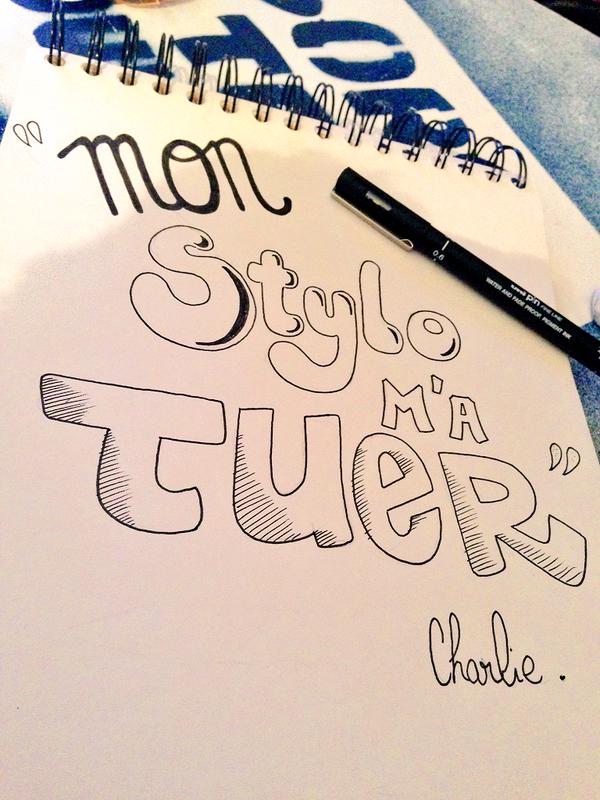 “mon
Stylo
M'A
TUER”
Charlie.
0.6
uni PiN FINE LINE
WATER AND FADE PROOF, PIGMENT INK